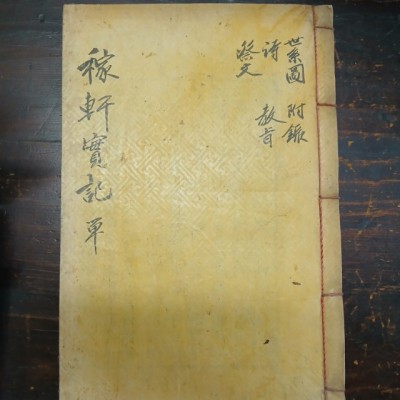 世系圖 附錄
詩 教旨
祭文
稼軒實記 單